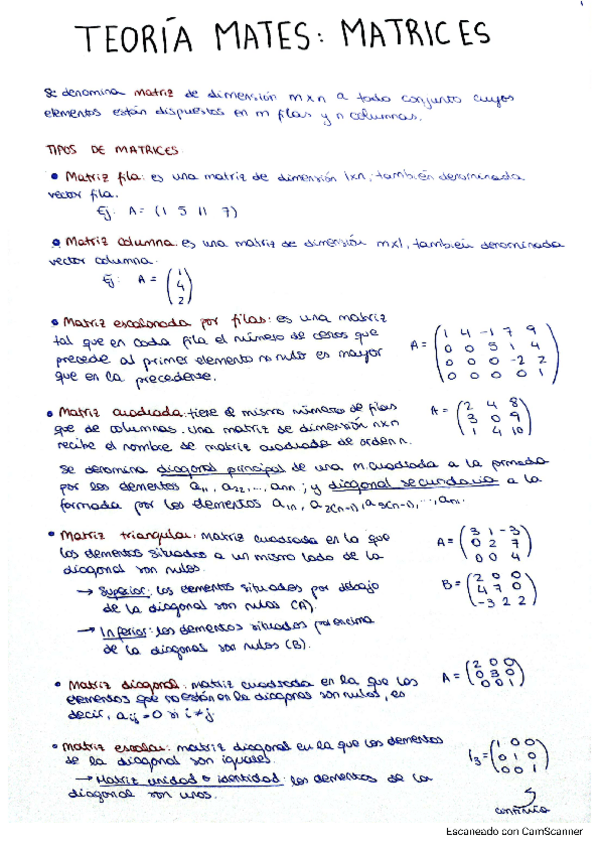 TEORÍA MATES: MATRICES
Se denomina matriz de dimensión m×n a todo conjunto cuyos
elementos están dispuestos en m filas y n columnas.
TIPOS DE MATRICES
• Matriz fila: es una matriz de dimensión 1×n, también denominada
vector fila.
Ej: A = (1 5 11 7)
• Matriz columna: es una matriz de dimensión m×1, también denominada
vector columna.
Ej: A = (1
4
2)
• Matriz escalonada por filas: es una matriz
tal que en cada fila el número de ceros que
precede al primer elemento no nulo es mayor
que en la precedente.
A = (1 4 -1 7 9
0 0 5 1 4
0 0 0 -2 2
0 0 0 0 1)
• Matriz cuadrada: tiene el mismo número de filas
que de columnas. Una matriz de dimensión n×n
recibe el nombre de matriz cuadrada de orden n.
A = (2 4 8
3 0 9
1 4 10)
Se denomina diagonal principal de una m. cuadrada a la formada
por los elementos a11, a22, ..., ann; y diagonal secundaria a la
formada por los elementos a1n, a2(n-1), a3(n-1), ..., an1.
• Matriz triangular: matriz cuadrada en la que
los elementos situados a un mismo lado de la
diagonal son nulos.
→ Superior: los elementos situados por debajo
de la diagonal son nulos (A).
→ Inferior: los elementos situados por encima
de la diagonal son nulos (B).
A = (3 1 -3
0 2 7
0 0 4)
B = (2 0 0
4 7 0
-3 2 2)
• Matriz diagonal: matriz cuadrada en la que los
elementos que no están en la diagonal son nulos, es
decir, aij = 0 si i ≠ j
A = (2 0 0
0 3 0
0 0 1)
• Matriz escalar: matriz diagonal en la que los elementos
de la diagonal son iguales.
→ Matriz unidad o identidad: los elementos de la
diagonal son unos.
I3 = (1 0 0
0 1 0
0 0 1)
continúa
Escaneado con CamScanner